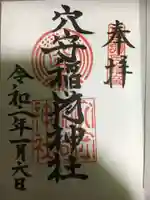 奉拝
穴守稲荷神社
令和二年一月六日